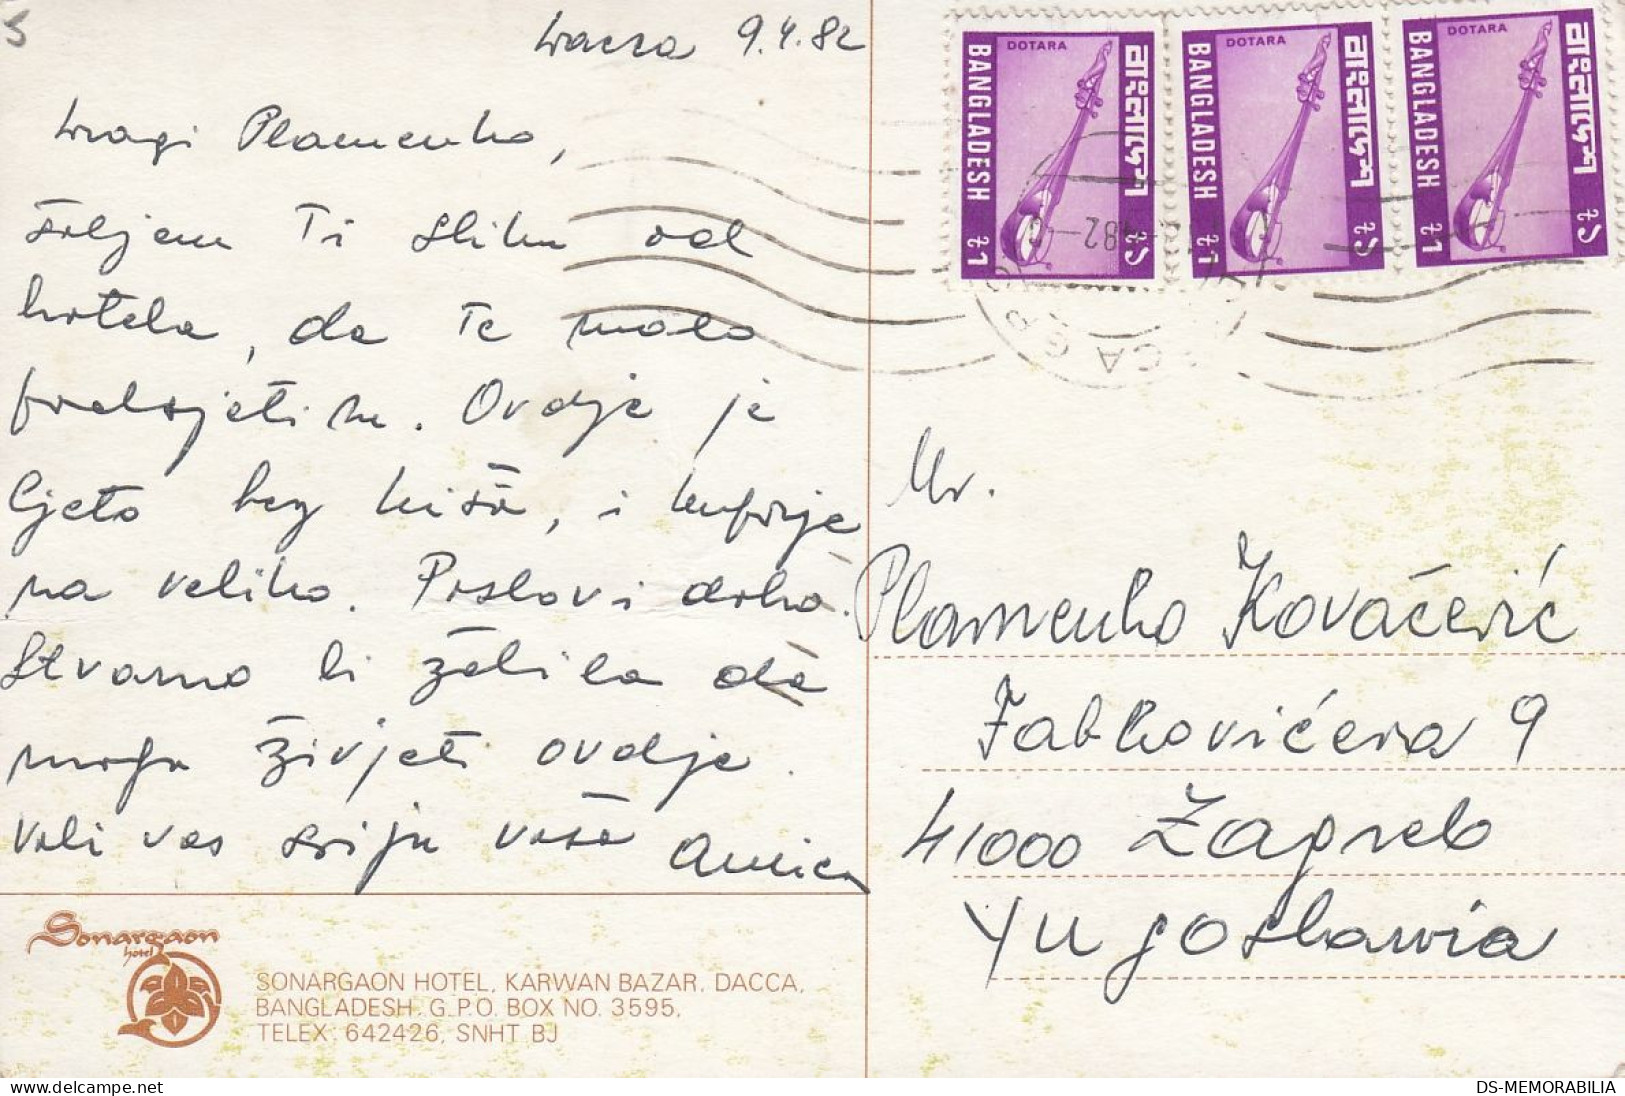 Dacca 9.4.82
Dragi Plamenko,
šaljem Ti sliku od
hotela, da Te malo
podsjetim. Ovdje je
ljeto bez kiša, i kupuje
na veliko. Poslovi dobro.
Stvarno bi željela da
mogu živjeti ovdje.
Voli vas sviju vaša
Amica
BANGLADESH
DOTARA
বাংলাদেশ
ট ১
ট 1
BANGLADESH
DOTARA
বাংলাদেশ
ট ১
ট 1
BANGLADESH
DOTARA
বাংলাদেশ
ট ১
ট 1
Mr.
Plamenko Kovačević
Jabkovićeva 9
41000 Zagreb
Yugoslavia
Sonargaon
hotel
SONARGAON HOTEL, KARWAN BAZAR, DACCA,
BANGLADESH. G.P.O. BOX NO. 3595,
TELEX: 642426, SNHT BJ
DS-MEMORABILIA
www.delcampe.net